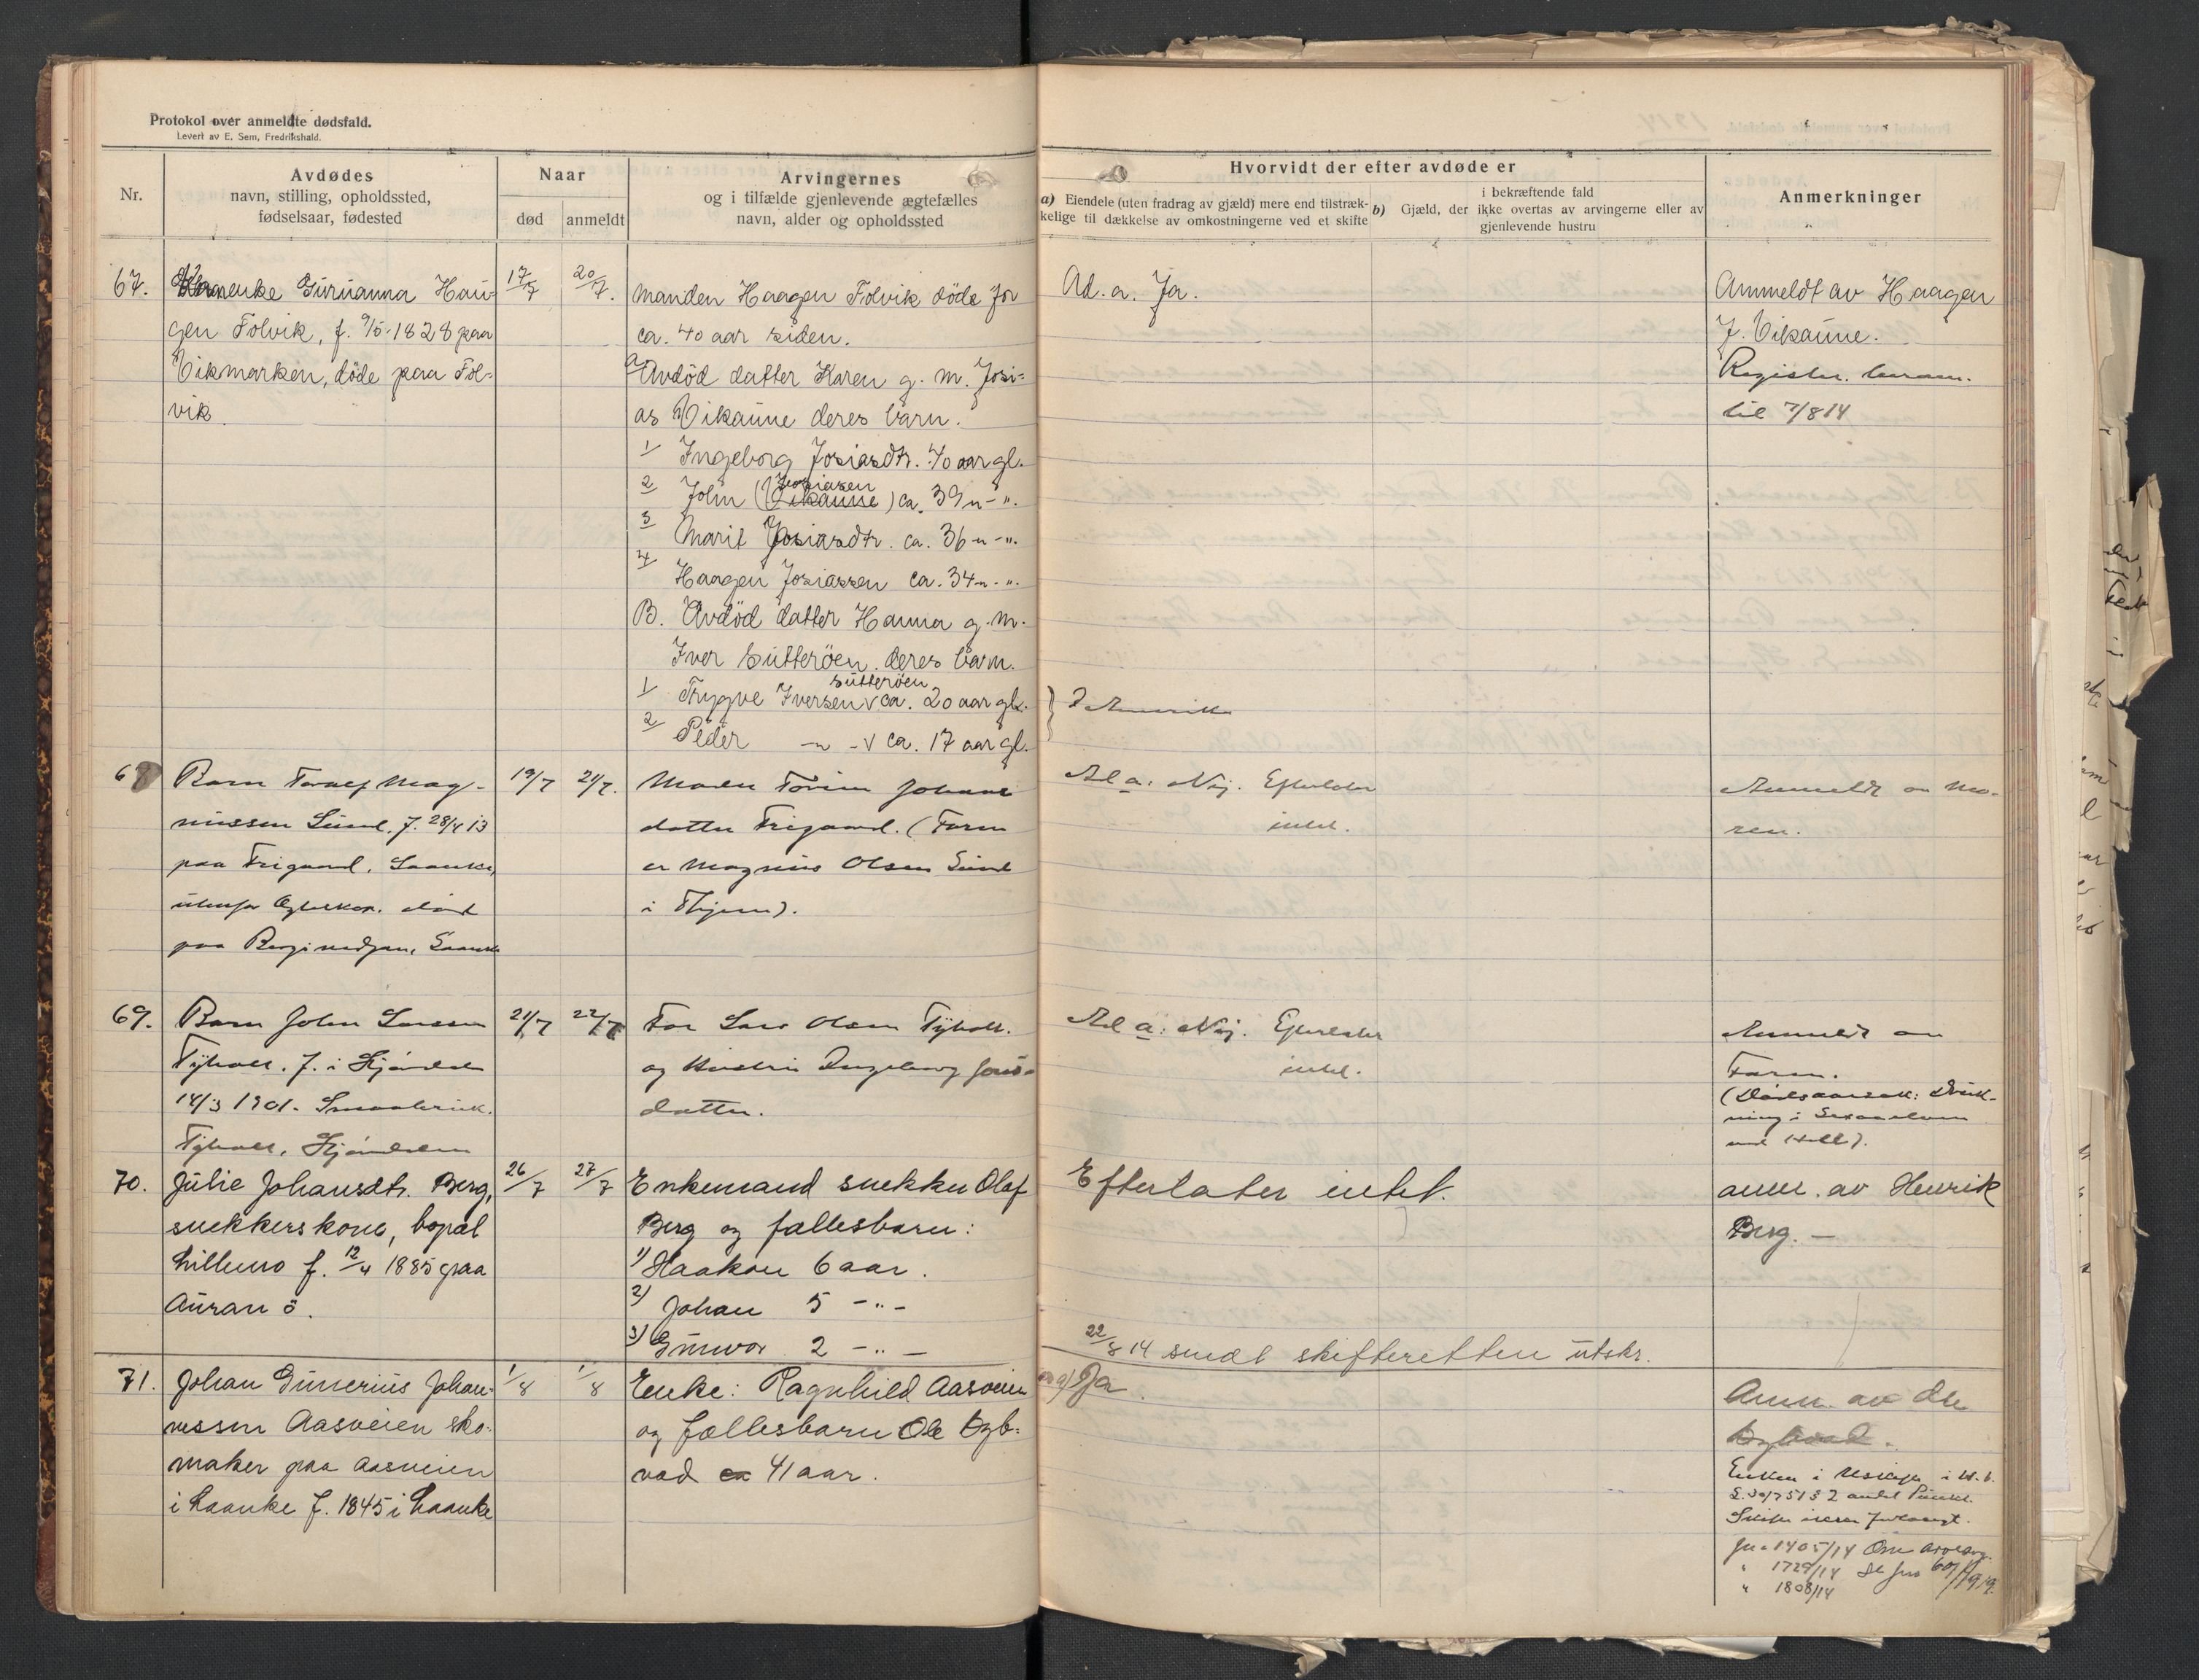 Protokol over anmeldte dødsfald.
Levert av E. Sem, Fredrikshald.
Nr.
Avdødes
navn, stilling, opholdssted,
fødselsaar, fødested
Naar
død
anmeldt
Arvingernes
og i tilfælde gjenlevende ægtefælles
navn, alder og opholdssted
Hvorvidt der efter avdøde er
a) Eiendele (uten fradrag av gjæld) mere end tilstræk-
kelige til dækkelse av omkostningerne ved et skifte
i bekræftende fald
b) Gjæld, der ikke overtas av arvingerne eller av
gjenlevende hustru
Anmerkninger
67.
enke Gurianna Hau-
gen Folvik, f. 9/5-1828 paa
Vikmarken, döde paa Fol-
vik.
17/7
20/7.
Manden Haagen Folvik döde for
ca. 40 aar siden.
a Avdöd datter Karen g. m. Josi-
as Vikaune deres barn.
1 Ingeborg Josiasdtr. 40 aar gl.
2 John (Vikaune) Josiasen ca. 39 " - ".
3 Marit Josiasdtr. ca. 36 " - ".
4 Haagen Josiassen ca. 34 " - ".
B. Avdöd datter Hanna g. m.
Iver Sutteröen. deres barn.
1 Trygve Iversen Sutteröen ca. 20 aar gl.
2 Peder - " - ca. 17 aar gl.
Ad. a. Ja.
Ammeldt av Haagen
J. Vikaune.
Register. beram.
til 7/8 14
68
Barn Toralf Mag-
nussen Sund. f. 28/4 13
paa Trigaard. Laanke,
utenfor Egteskap. død
paa Laanke
19/7
21/7.
Moder Johans
datter Trigaard. (Faren
er Magnus Olsen Sund
i).
Ad a: Nej. Efterlater
intet.
Anmeldt av Mo-
ren.
69.
Barn John Larssen
Tyholt. f. i Stjördalen
14/3 1901.
Tyholt, Stjördalen
21/7
22/7
Far Lars Olsen Tyholt.
og Hustru Ingeborg Jons-
datter.
Ad a: Nej. Efterlater
intet.
Anmeldt av
Faren.
(Dödsaarsak: Druk-
ning i
ved Hell).
70.
Julie Johansdtr. Berg,
snekkerskone, bopæl
Lillemo f. 12/4 1885 paa
Auran ö.
26/7
27/7
Enkemand snekker Olaf
Berg og fællesbarn:
1) Haakon 6 aar.
2) Johan 5 - " -
3) Gunvor 2 - " -
Efterlater intet.
anm. av Henrik
Berg. -
22/8 14 sendt skifteretten utskr.
71.
Johan Gunerius Johan-
nessen Aasveien sko-
maker paa Aasveien
i Laanke f. 1845 i Laanke
1/8
1/8
Enke: Ragnhild Aasveien
og fællesbarn Ole Byb-
vad ca 41 aar.
a) Ja.
Anm. av Ole
Enken i Uskifte i H. t.
L. 30/7 51 § 2 andet Punkt.
Skifte ikke forlangt.
Jn. 1405/14
" 1729/14
" 1808/14